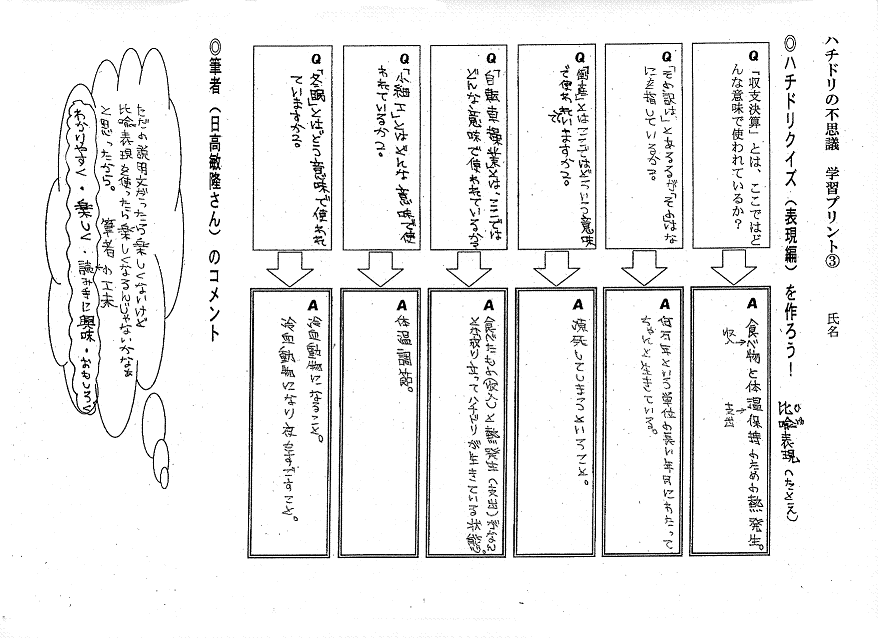 ハチドリの不思議　学習プリント③　氏名
◎ハチドリクイズ（表現編）を作ろう！
比喩表現（たとえ）
ひゆ
Q
「収支決算」とは、ここではど
んな意味で使われているか？
A
食べ物と体温保持のための熱発生。
収入
支出
Q
「その説は」とあるが「そのはな
に を指しているか？
A
何万年という単位の長い年月にわたって
ちゃんと生きている。
Q
「倒産」とはここではどういう意味
で使われていますか？
A
凍死してしまうということ。
Q
「自転車操業」とは、ここでは
どんな意味で使われているか？
A
食べたもの（収入）と熱発生（支出）がなん
とか成り立ってハチドリが生きている状態
Q
「小細工」とはどんな意味で使
われているか？
A
体温調節。
Q
「冬眠」とはどういう意味で使われ
ていますか？
A
冷血動物になること。
冷血動物になり夜をすごすこと。
◎筆者（日高敏隆さん）のコメント
ただの説明文だったら楽しくないけど
比喩表現を使ったら楽しくなるんじゃないかなぁ
と思ったから。　筆者の工夫
わかりやすく・楽しく・読み手に興味・おもしろく